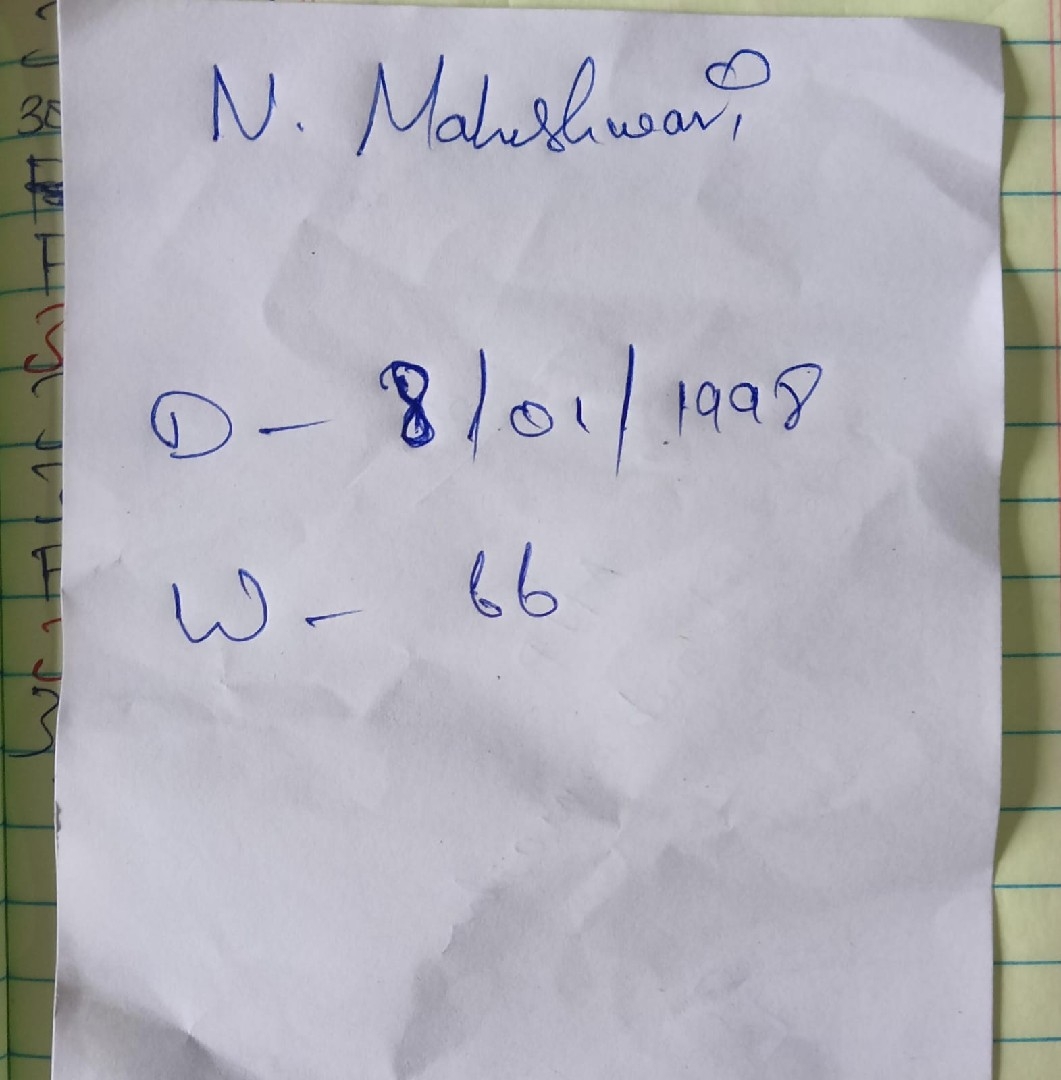 N. Maheshwari
D - 8/01/1998
W - 66